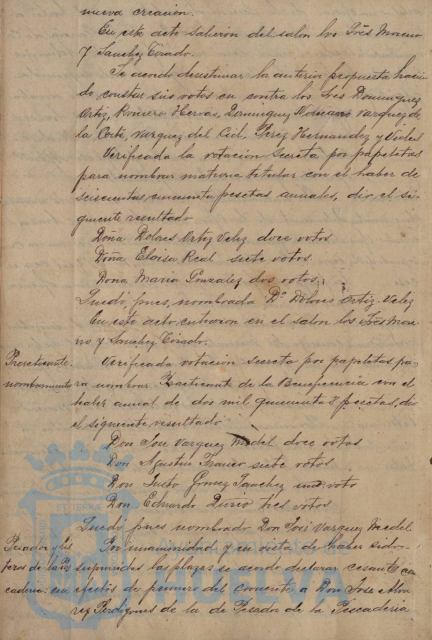 nueva creacion.
En este acto salieron del salon los Sres Moreno
y Sanchez Tirado.
Se acordó desestimar la anterior propuesta hacien
do constar sus votos en contra los Sres Dominguez
Ortiz, Romero Hervas, Dominguez Vazquez de
la Corte, Vazquez del Cid, Perez Hernandez y
Verificada la votacion secreta por papeletas
para nombrar matrona titular con el haber de
seiscientas pesetas anuales, dió el si-
guiente resultado
Doña Dolores Ortiz Velez doce votos
Dña Eloisa Real siete votos.
Dona Maria Gonzalez dos votos.
Quedó, pues, nombrada Dª Dolores Ortiz Velez
En este acto entraron en el salon los Sres More
no y Sanchez Tirado.
Practicante
nombramiento
Verificada votacion secreta por papeletas pa-
ra nombrar Practicante de la Beneficencia con el
haber anual de dos mil quinientas pesetas, dió
el siguiente resultado
Don Jose Vazquez Medel doce votos
Don Agustin Franco siete votos
Don Justo Gomez Sanchez un voto
Don Eduardo tres votos
Quedó pues nombrado Don José Vazquez Medel
Por unanimidad y en vista de haber sido
suprimidas las plazas se acordó declarar cesante
en efectos de primero del corriente a Don Jose
Perdigones de la de Pesador de la Pescaderia
HUELVA